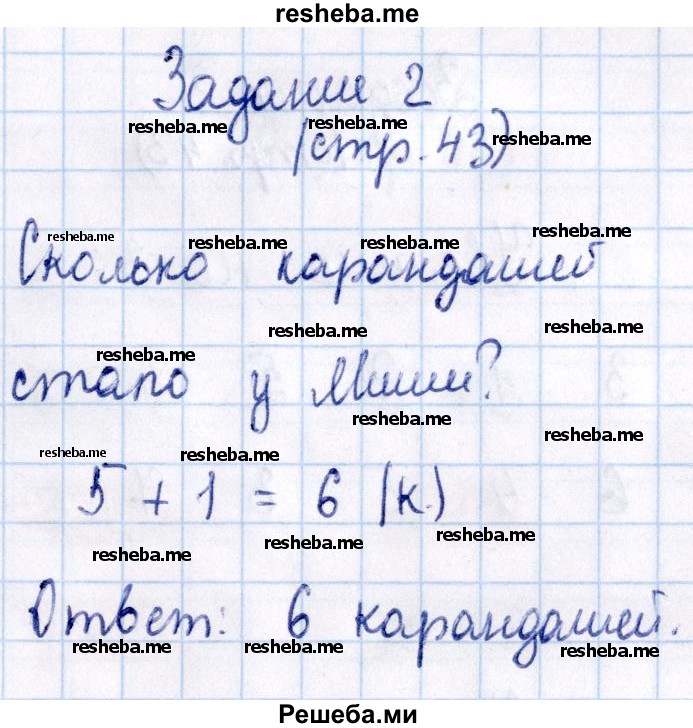 resheba.me
Задание 2
resheba.me resheba.me resheba.me
(стр. 43)
resheba.me resheba.me resheba.me resheba.me
Сколько карандашей
resheba.me resheba.me
resheba.me
стало у Миши?
resheba.me resheba.me
resheba.me resheba.me
5 + 1 = 6 (к.)
resheba.me resheba.me resheba.me
Ответ: 6 карандашей.
resheba.me resheba.me resheba.me
Решеба.ми